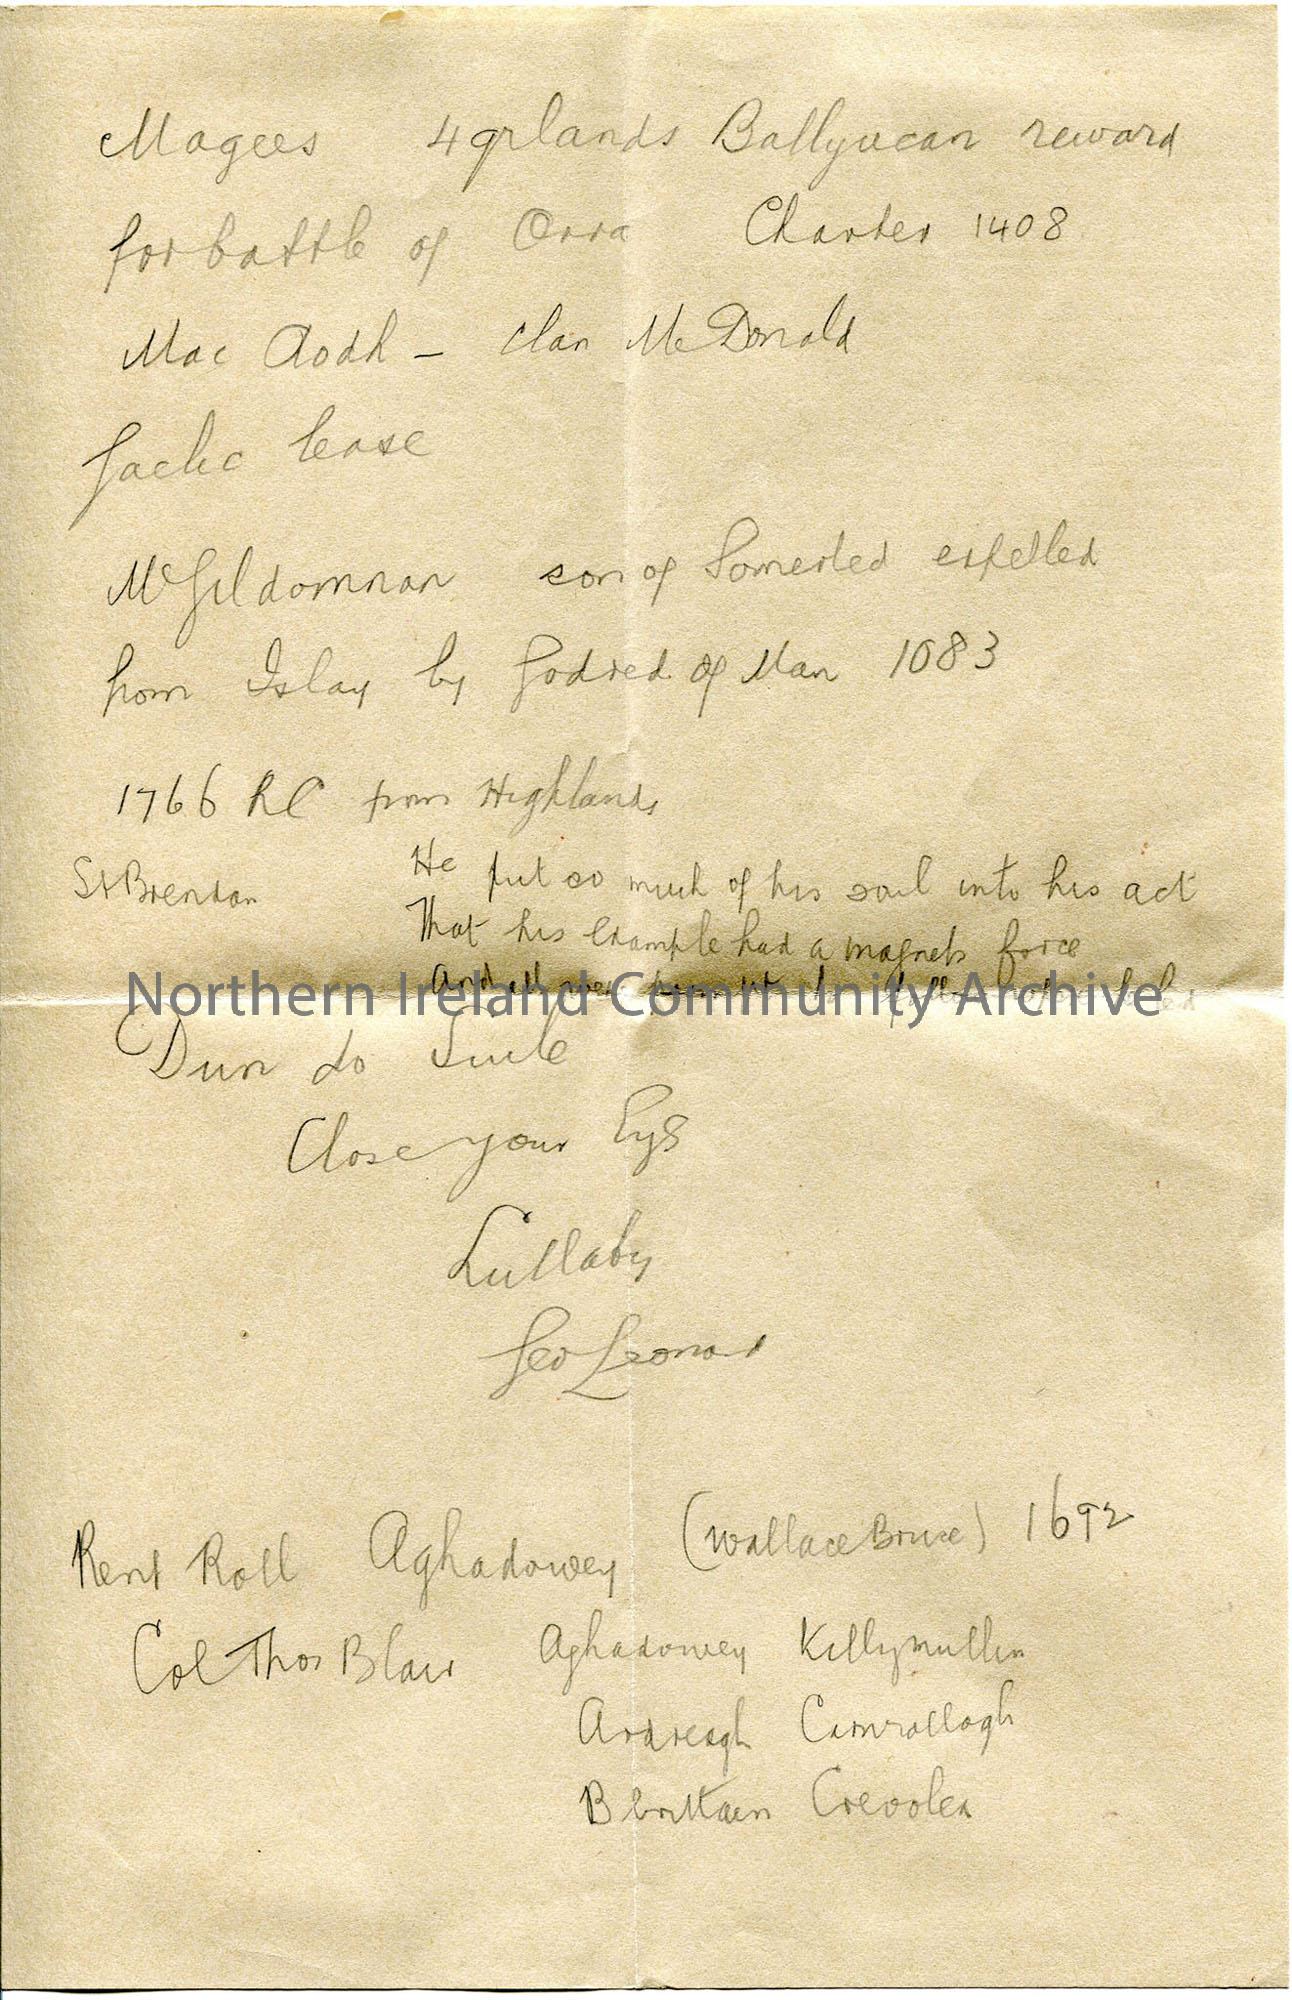 Magees 4 qrlands Ballyucan reward
for battle of Orra Charter 1408
Mac Aodh - clan McDonald
Gaelic lease
McGildomnan son of Somerled expelled
from Islay by Godred of Man 1083
1766 RC from Highlands
St Brendan He put so much of his soul into his act
That his example had a magnets force
And all were
Northern Ireland Community Archive
Dun do Suile
Close your Eys
Lullaby
Geo Leonard
Rent Roll Aghadowey (Wallace Bruce) 1692
Col Thos Blair Aghadowey Killymullin
Ardreagh Camrallagh
Bbrittain Crevolea